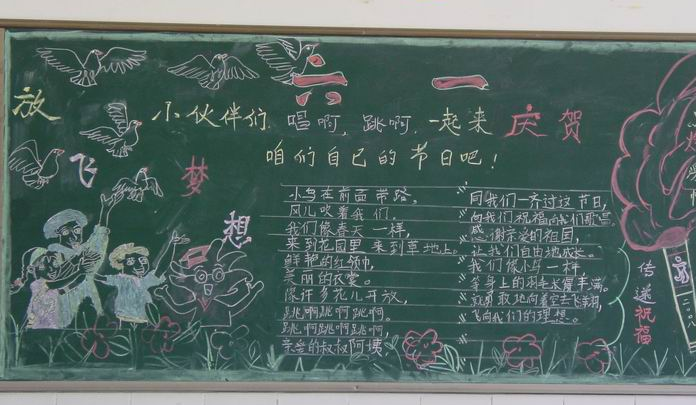 放飞梦想
六一
小伙伴们,唱啊,跳啊,一起来庆贺
咱们自己的节日吧!
小鸟在前面带路,
风儿吹着我们,
我们像春天一样,
来到花园里 来到草地上。
鲜艳的红领巾,
美丽的衣裳。
像许多花儿开放,
跳啊跳啊跳啊,
跳啊跳啊跳啊,
亲爱的叔叔阿姨
同我们一齐讨这节日,
向我们祝福向我们歌唱。
感谢亲爱的祖国,
让我们自由地成长。
我们像小鸟一样,
等身上的羽毛长得丰满。
就勇敢地向着空去飞翔,
飞向我们的理想。
传递祝福